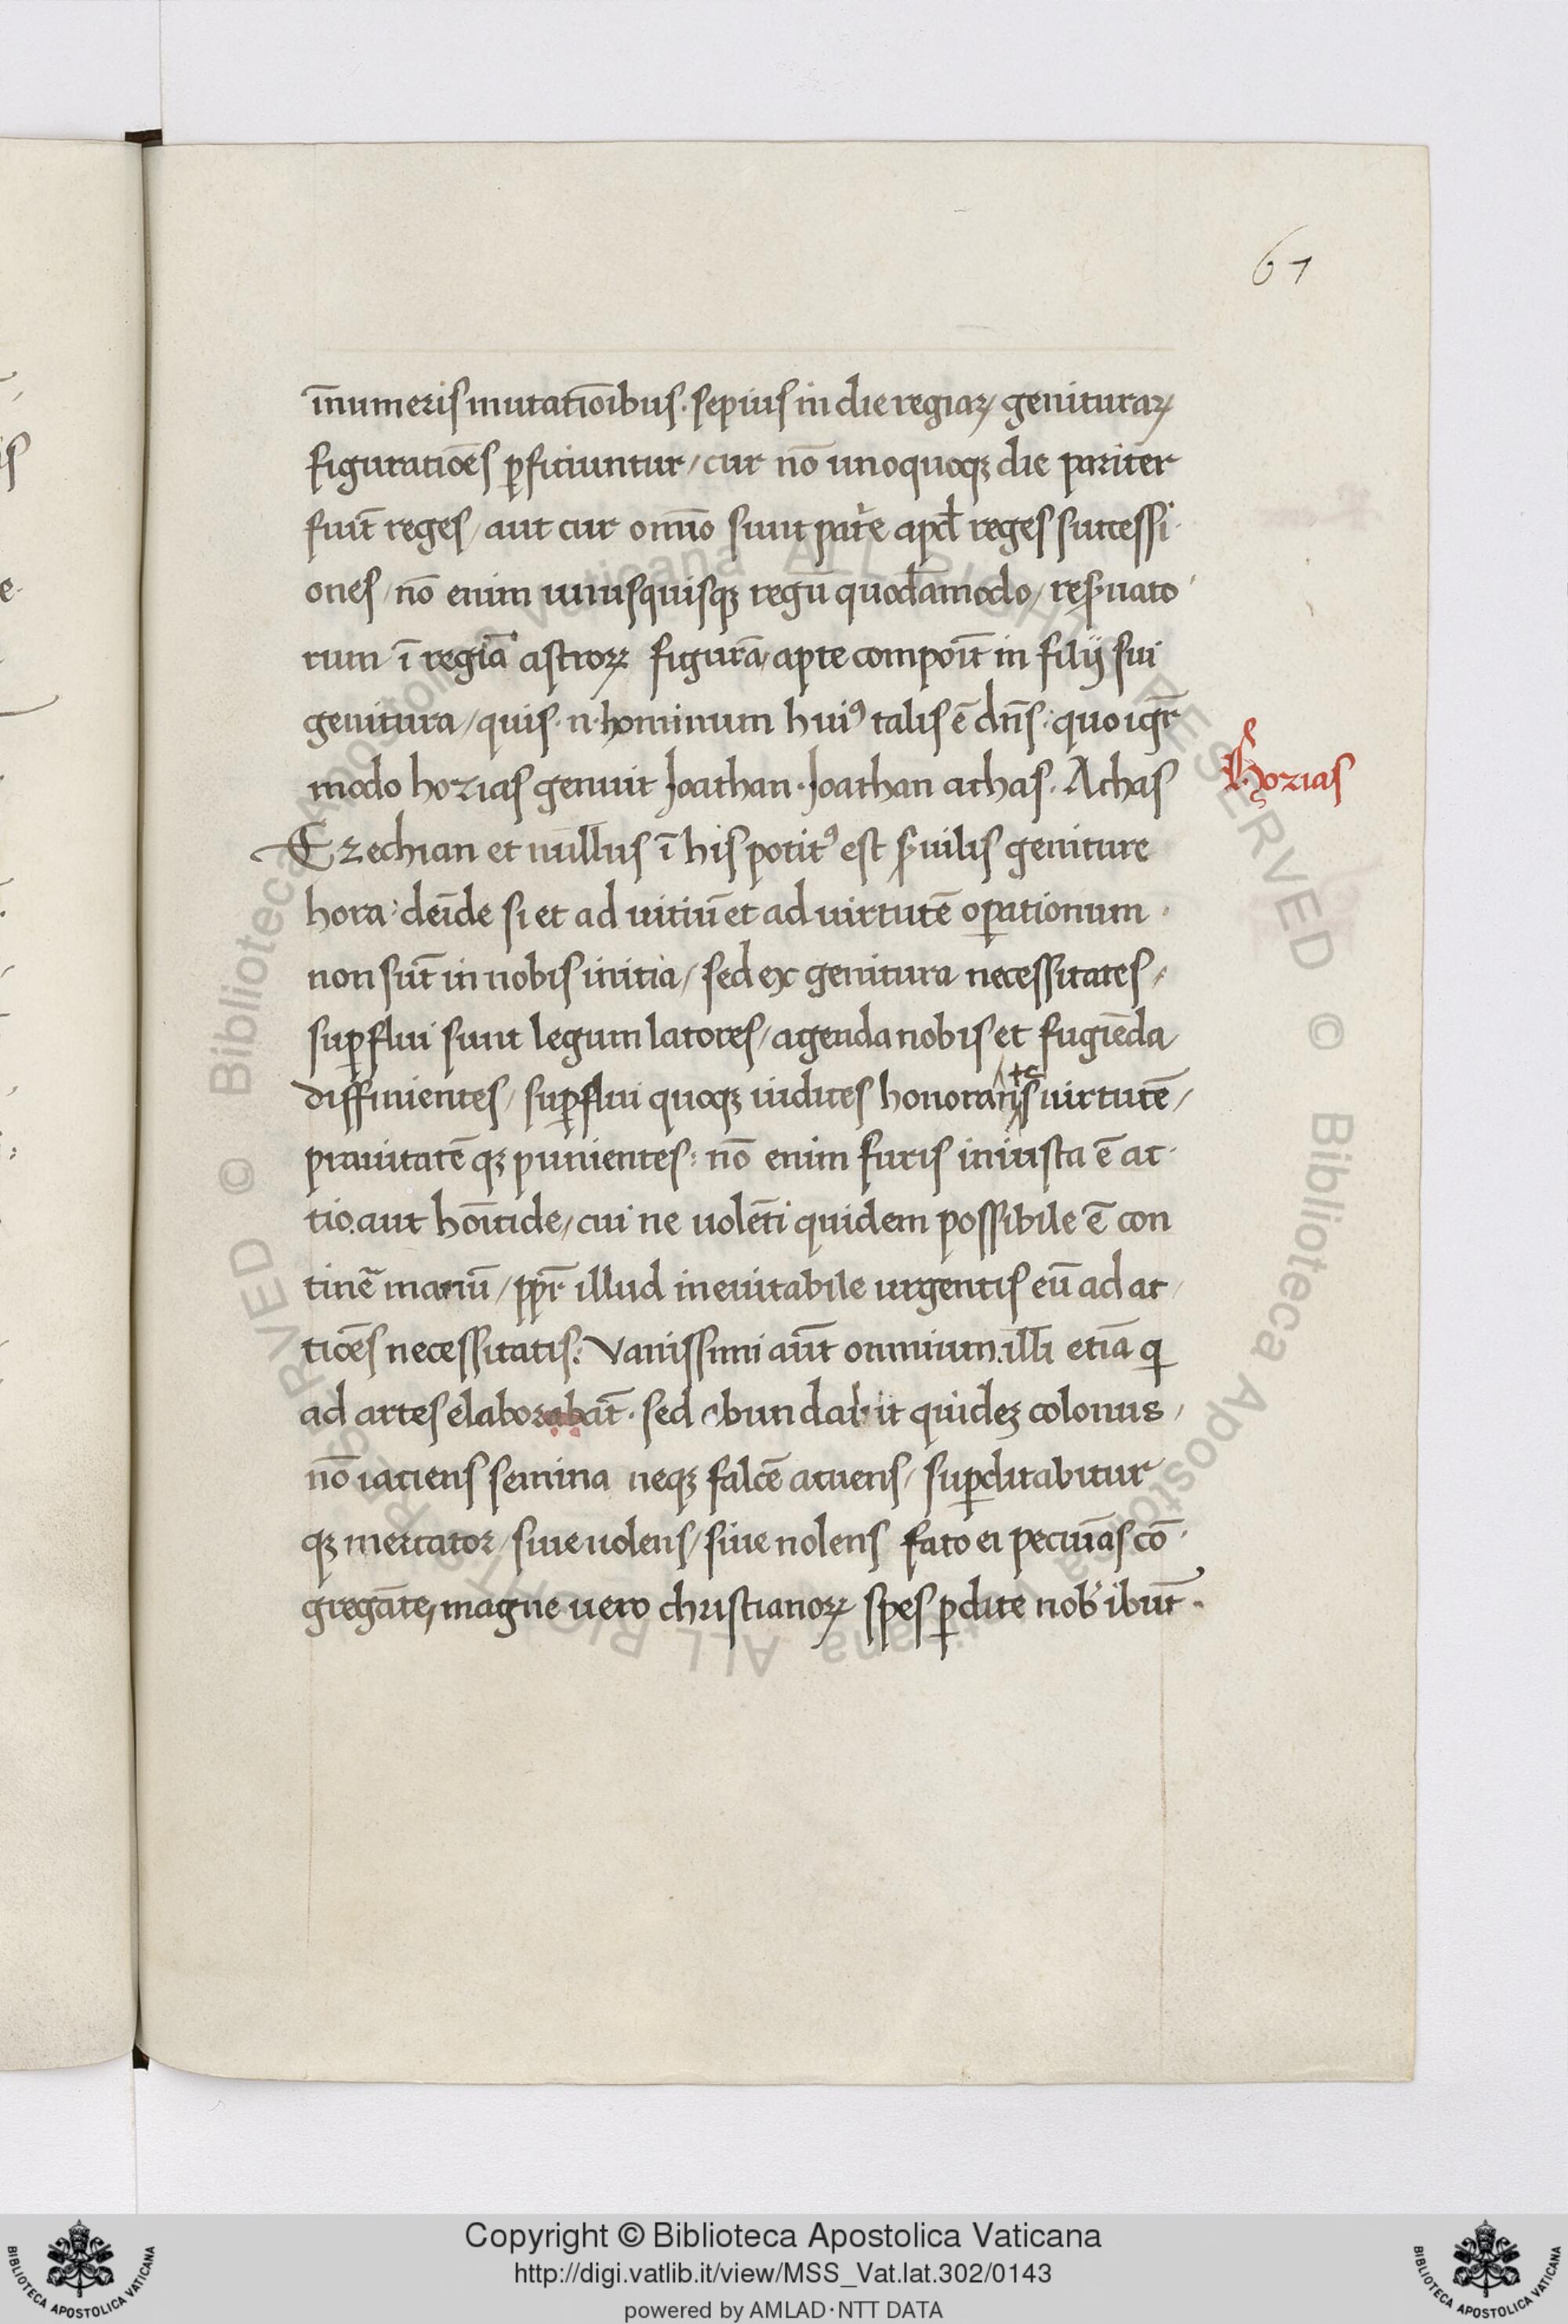 61
īnumeris mutatiōibus. sepius in die regiaꝝ genituraꝝ
figuratiōes ꝑficiuntur / cur nō unoquoqꝫ die pariter
fuīt reges / aut cur omīo sunt pat͛e apđ reges successi
ones / nō enim unusquisqꝫ regū quodāmodo / res͛uato
rum ī regiā astroꝝ figurā / apte compoīt in filij sui
genitura / quis .n. hominum hui⁹ talis ē dn̄s: quo igr̄
modo hozias genuit Joathan. Joathan achas. Achas
Hozias
Ezechian et nullus ī his potit⁹ est s͛uilis geniture
hora: deīde si et ad uitiū et ad uirtutē oꝑationum
non sūt in nobis initia / sed ex genitura necessitates /
suꝑflui sunt legum latores / agenda nobis et fugiēda
diffinientes / suꝑflui quoqꝫ iudices honorantes uirtutē /
prauitatē qꝫ punientes: nō enim furis iniusta ē ac
tio. aut hoīcide / cui ne uolēti quidem possibile ē con
tinē manū / ppr̄ illud ineuitabile urgentis eū ad ac
tiōes necessitatis: Vanissimi aūt omnium. illi etiā qͥ
ad artes elaborabāt. sed abundabit quideꝫ colonus /
nō iaciens semina neqꝫ falcē acuens / suꝑditabitur
qꝫ mercator / siue uolens / siue nolens fato ei pecuīas cō
gregāte, magne uero christianoꝝ spes ꝑdite nob̓ ibūt.
Copyright © Biblioteca Apostolica Vaticana
http://digi.vatlib.it/view/MSS_Vat.lat.302/0143
powered by AMLAD·NTT DATA
BIBLIOTECA APOSTOLICA VATICANA
BIBLIOTECA APOSTOLICA VATICANA